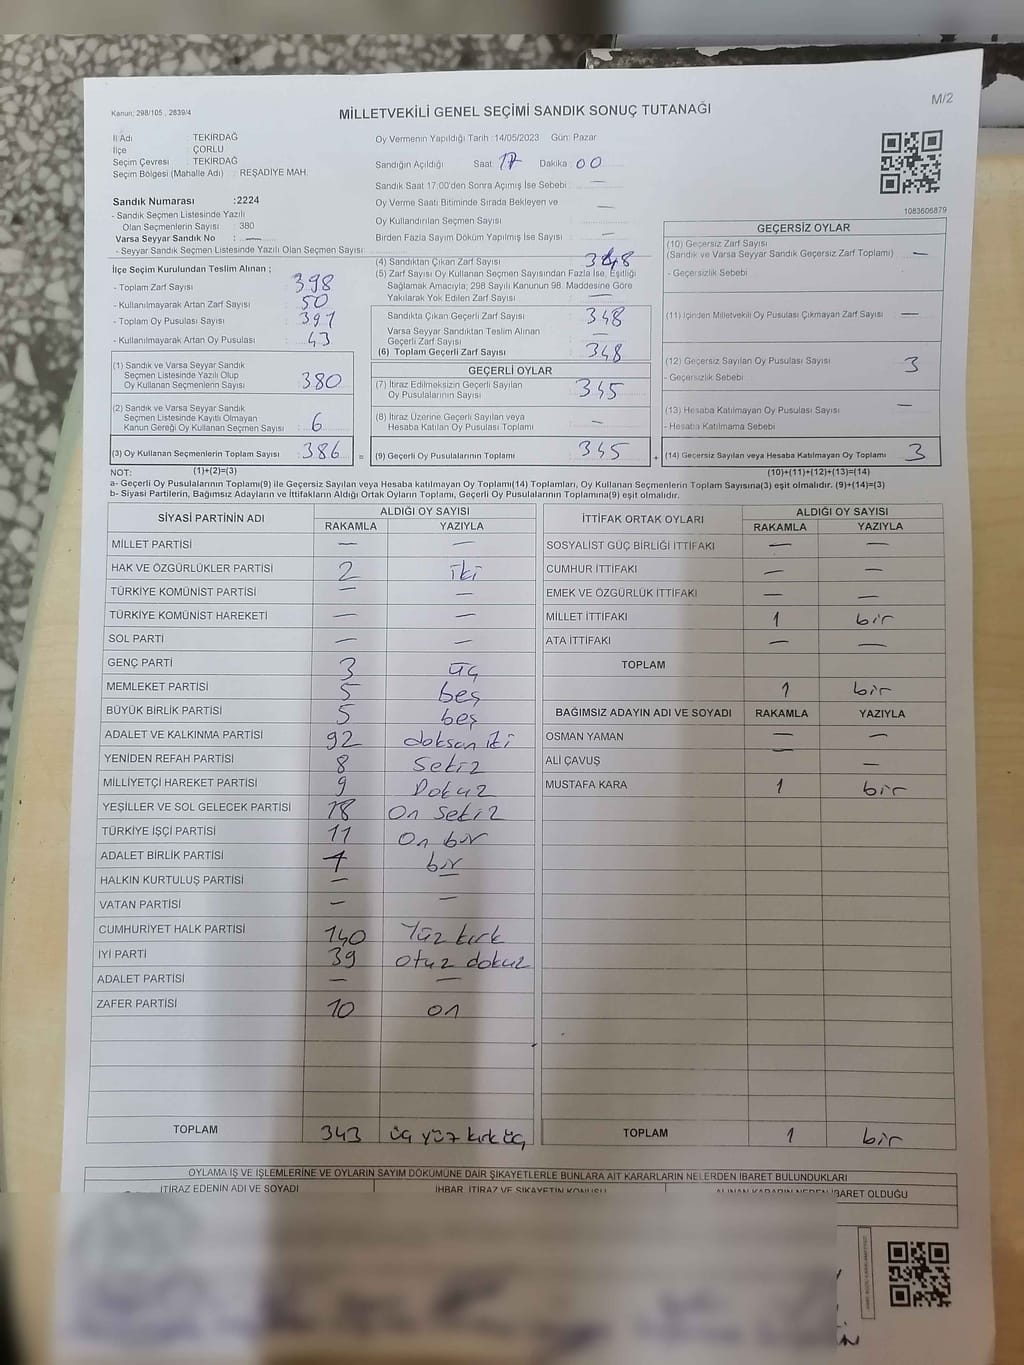 M/2
Kanun: 298/105 , 2839/4
MİLLETVEKİLİ GENEL SEÇİMİ SANDIK SONUÇ TUTANAĞI
İl Adı : TEKİRDAĞ
İlçe : ÇORLU
Seçim Çevresi : TEKİRDAĞ
Seçim Bölgesi (Mahalle Adı) : REŞADİYE MAH.
Sandık Numarası :2224
- Sandık Seçmen Listesinde Yazılı
Olan Seçmenlerin Sayısı : 380
Varsa Seyyar Sandık No : —
- Seyyar Sandık Seçmen Listesinde Yazılı Olan Seçmen Sayısı:
İlçe Seçim Kurulundan Teslim Alınan ;
- Toplam Zarf Sayısı : 398
- Kullanılmayarak Artan Zarf Sayısı : 50
- Toplam Oy Pusulası Sayısı : 391
- Kullanılmayarak Artan Oy Pusulası : 43
(1) Sandık ve Varsa Seyyar Sandık
Seçmen Listesinde Yazılı Olup
Oy Kullanan Seçmenlerin Sayısı : 380
(2) Sandık ve Varsa Seyyar Sandık
Seçmen Listesinde Kayıtlı Olmayan
Kanun Gereği Oy Kullanan Seçmen Sayısı : 6
(3) Oy Kullanan Seçmenlerin Toplam Sayısı : 386 =
Oy Vermenin Yapıldığı Tarih :14/05/2023 Gün: Pazar
Sandığın Açıldığı Saat : 17 Dakika : 00
Sandık Saat 17:00'den Sonra Açımış İse Sebebi : —
Oy Verme Saati Bitiminde Sırada Bekleyen ve
Oy Kullandırılan Seçmen Sayısı : —
Birden Fazla Sayım Döküm Yapılmış İse Sayısı : —
(4) Sandıktan Çıkan Zarf Sayısı : 348
(5) Zarf Sayısı Oy Kullanan Seçmen Sayısından Fazla İse, Eşitliği
Sağlamak Amacıyla; 298 Sayılı Kanunun 98. Maddesine Göre
Yakılarak Yok Edilen Zarf Sayısı : —
Sandıkta Çıkan Geçerli Zarf Sayısı : 348
Varsa Seyyar Sandıktan Teslim Alınan
Geçerli Zarf Sayısı : —
(6) Toplam Geçerli Zarf Sayısı : 348
GEÇERLİ OYLAR
(7) İtiraz Edilmeksizin Geçerli Sayılan
Oy Pusulalarının Sayısı : 345
(8) İtiraz Üzerine Geçerli Sayılan veya
Hesaba Katılan Oy Pusulası Toplamı : —
(9) Geçerli Oy Pusulalarının Toplamı : 345 +
1083606879
GEÇERSİZ OYLAR
(10) Geçersiz Zarf Sayısı
(Sandık ve Varsa Seyyar Sandık Geçersiz Zarf Toplamı) : —
- Geçersizlik Sebebi
(11) İçinden Milletvekili Oy Pusulası Çıkmayan Zarf Sayısı : —
(12) Geçersiz Sayılan Oy Pusulası Sayısı : 3
- Geçersizlik Sebebi
(13) Hesaba Katılmayan Oy Pusulası Sayısı : —
- Hesaba Katılmama Sebebi
(14) Geçersiz Sayılan veya Hesaba Katılmayan Oy Toplamı : 3
NOT: (1)+(2)=(3) (10)+(11)+(12)+(13)=(14)
a- Geçerli Oy Pusulaları Toplamı(9) ile Geçersiz Sayılan veya Hesaba katılmayan Oy Toplamı(14) Toplamları, Oy Kullanan Seçmenlerin Toplam Sayısına(3) eşit olmalıdır. (9)+(14)=(3)
b- Siyasi Partilerin, Bağımsız Adayların ve İttifakların Aldığı Ortak Oyların Toplamı, Geçerli Oy Pusulalarının Toplamına(9) eşit olmalıdır.
SİYASİ PARTİNİN ADI ALDIĞI OY SAYISI
RAKAMLA YAZIYLA
MİLLET PARTİSİ — —
HAK VE ÖZGÜRLÜKLER PARTİSİ 2 iki
TÜRKİYE KOMÜNİST PARTİSİ — —
TÜRKİYE KOMÜNİST HAREKETİ — —
SOL PARTİ — —
GENÇ PARTİ 3 üç
MEMLEKET PARTİSİ 5 beş
BÜYÜK BİRLİK PARTİSİ 5 beş
ADALET VE KALKINMA PARTİSİ 92 doksan iki
YENİDEN REFAH PARTİSİ 8 Sekiz
MİLLİYETÇİ HAREKET PARTİSİ 9 Dokuz
YEŞİLLER VE SOL GELECEK PARTİSİ 18 On Sekiz
TÜRKİYE İŞÇİ PARTİSİ 11 On bir
ADALET BİRLİK PARTİSİ 1 bir
HALKIN KURTULUŞ PARTİSİ — —
VATAN PARTİSİ — —
CUMHURİYET HALK PARTİSİ 140 Yüz kırk
İYİ PARTİ 39 otuz dokuz
ADALET PARTİSİ — —
ZAFER PARTİSİ 10 on
TOPLAM 343 üç yüz kırk üç
İTTİFAK ORTAK OYLARI ALDIĞI OY SAYISI
RAKAMLA YAZIYLA
SOSYALİST GÜÇ BİRLİĞİ İTTİFAKI — —
CUMHUR İTTİFAKI — —
EMEK VE ÖZGÜRLÜK İTTİFAKI — —
MİLLET İTTİFAKI 1 bir
ATA İTTİFAKI — —
TOPLAM 1 bir
BAĞIMSIZ ADAYIN ADI VE SOYADI RAKAMLA YAZIYLA
OSMAN YAMAN — —
ALİ ÇAVUŞ — —
MUSTAFA KARA 1 bir
TOPLAM 1 bir
OYLAMA İŞ VE İŞLEMLERİNE VE OYLARIN SAYIM DÖKÜMÜNE DAİR ŞİKAYETLERLE BUNLARA AİT KARARLARIN NELERDEN İBARET BULUNDUKLARI
İTİRAZ EDENİN ADI VE SOYADI İHBAR, İTİRAZ VE ŞİKAYETİN KONUSU ALINAN KARARIN NEDEN İBARET OLDUĞU